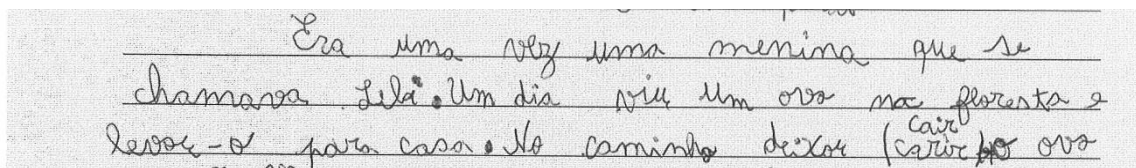 Era uma vez uma menina que se
chamava Lilá. Um dia viu um ovo na floresta e
levou-o para casa. No caminho deixou (cair o ovo